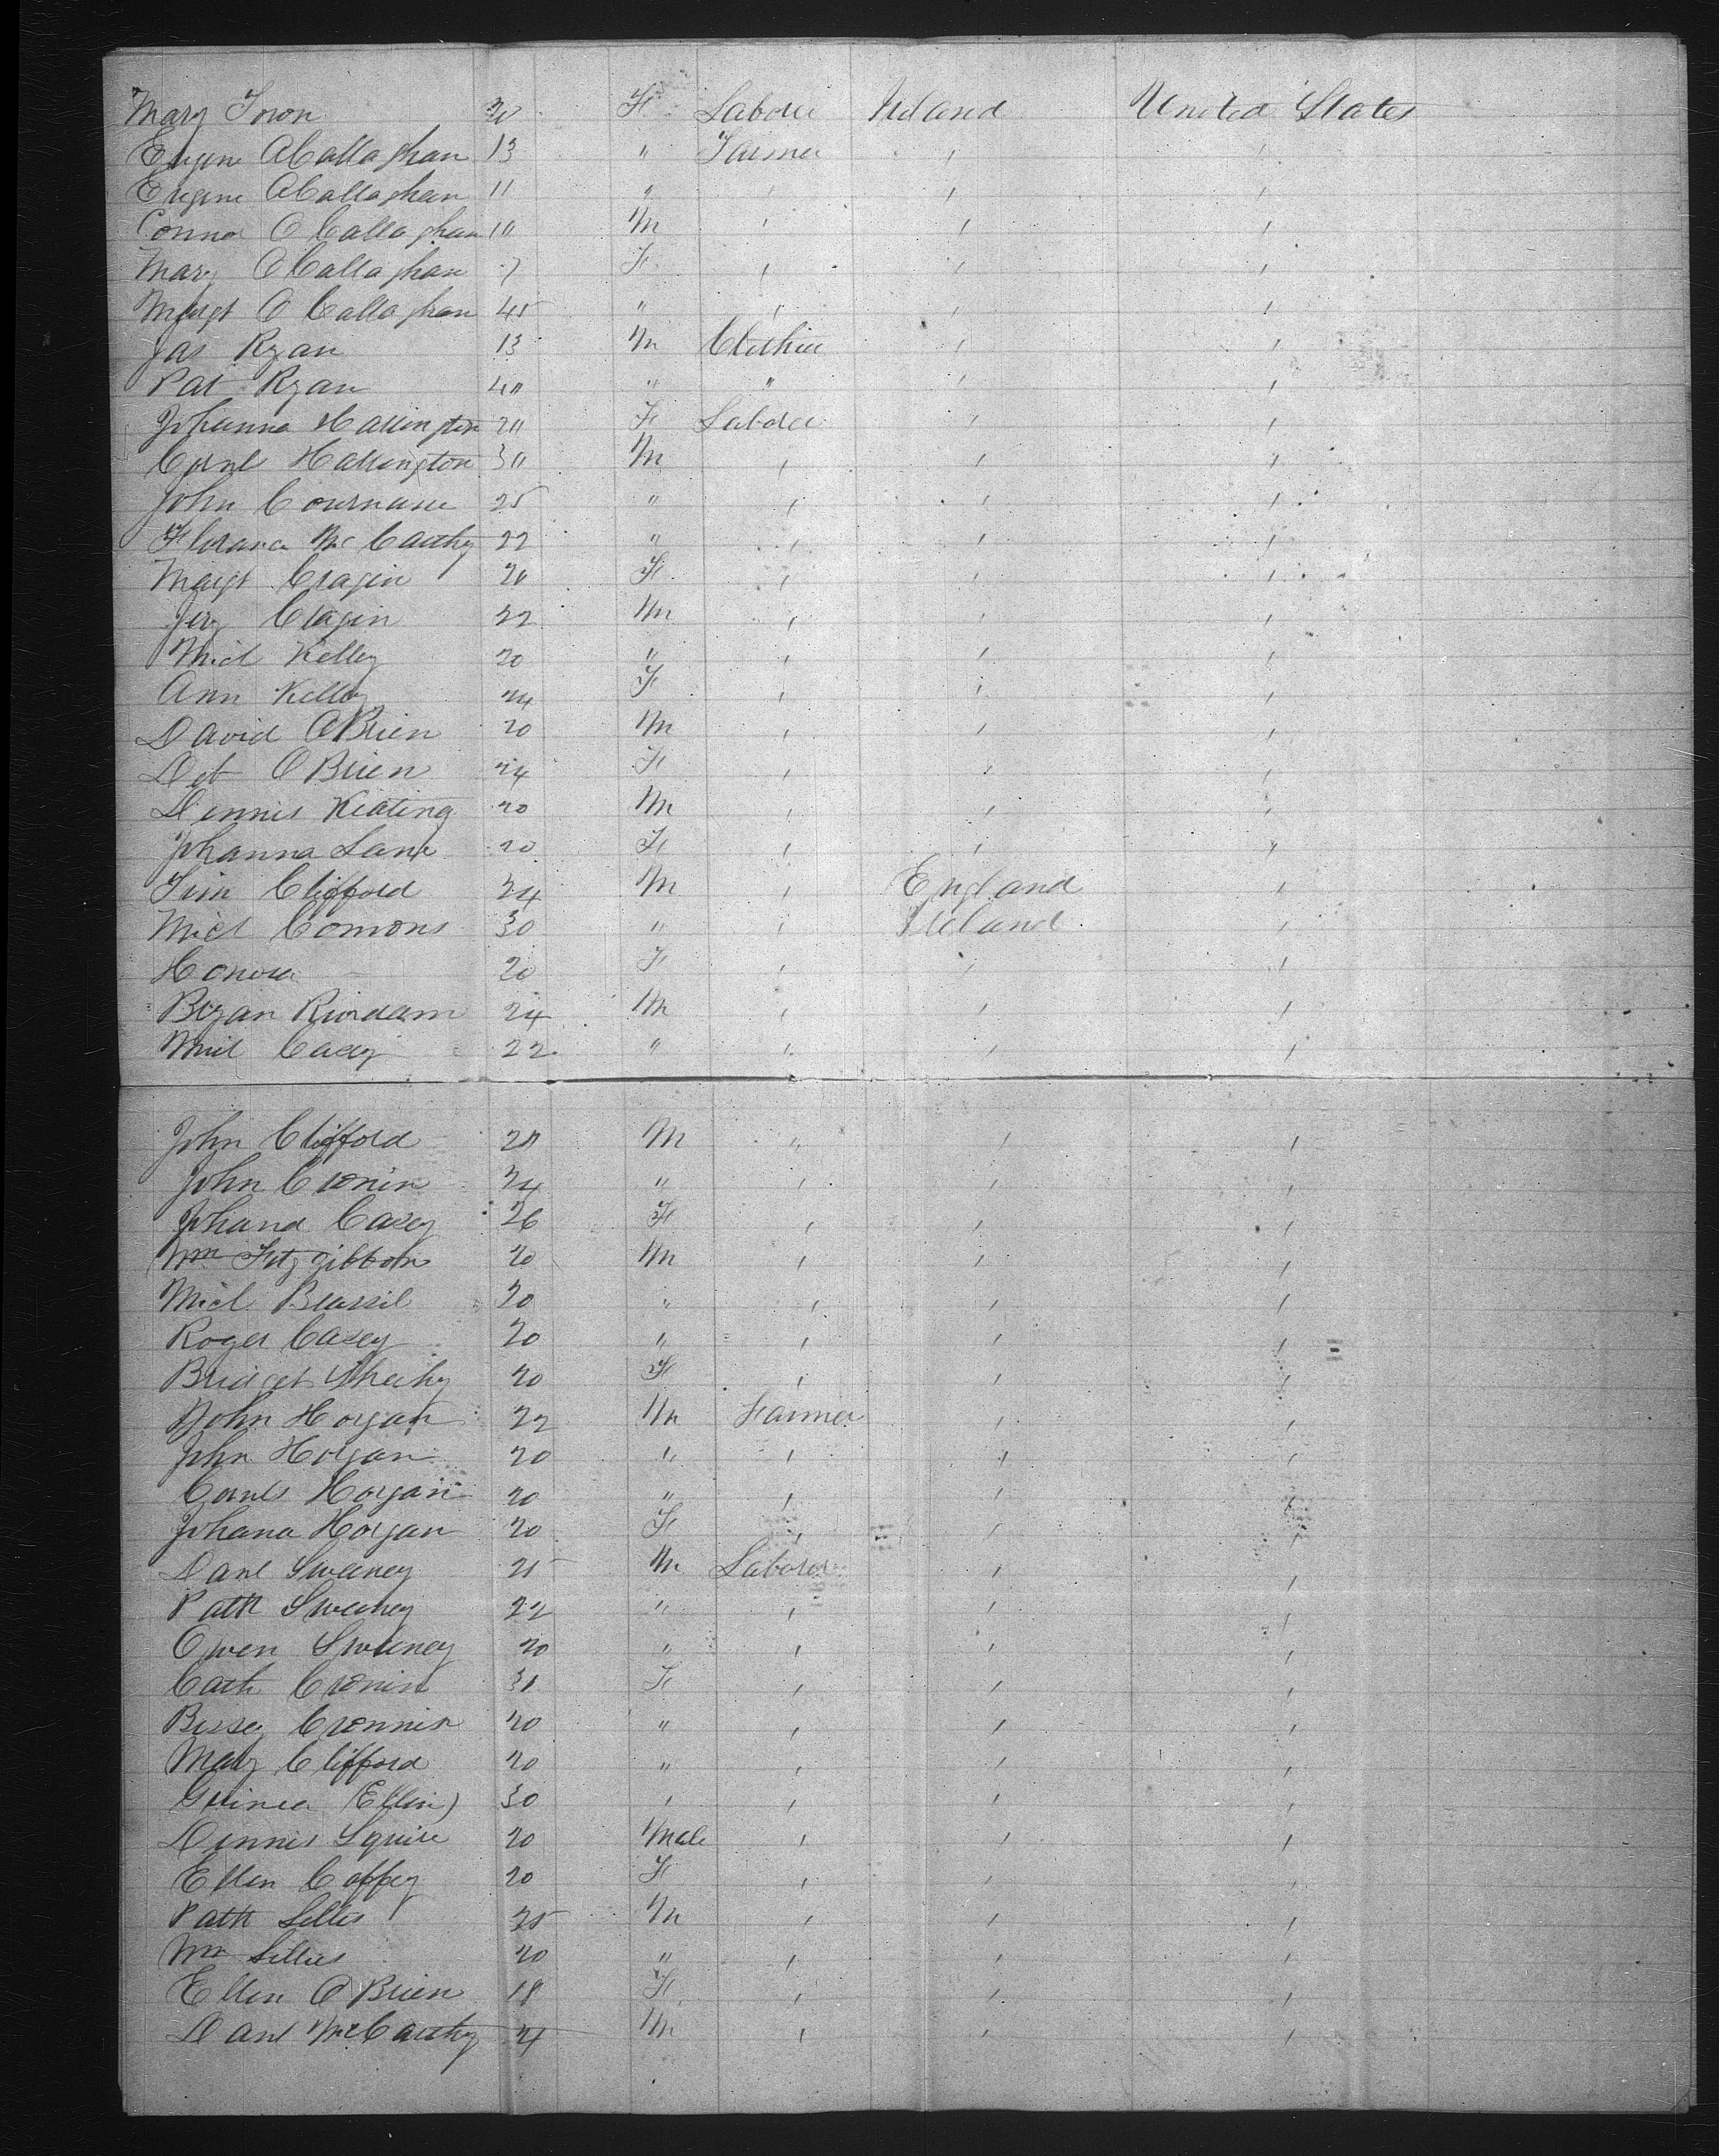 Mary 20 F Laborer Ireland United States
O'Callaghan 13 " Farmer ' '
Eugene O'Callaghan 11 " ' ' '
Connor O Callaghan 10 M ' ' '
Mary O'Callaghan 7 F ' ' '
Margt O Callaghan 45 " ' ' '
Jas Ryan 13 M ' '
Pat Ryan 40 " " ' '
Johanna Harrington 20 F Laborer ' '
Cornl Harrington 30 M ' ' '
John 25 " ' ' '
Florance McCarthy 22 " ' ' '
Margt Cragin 20 F ' ' '
Jery Cragin 22 M ' ' '
Micl Kelley 20 " ' ' '
Ann Kelley 24 F ' ' '
David O'Brien 20 M ' ' '
O Brien 24 F ' ' '
Dennis Keating 20 M ' ' '
Johanna Lane 20 F ' ' "
Tim Clifford 24 M ' England '
Micl Comons 30 " ' Ireland '
Honora — 20 F ' ' '
Bryan Riordam 24 M ' ' '
Micl Casey 22 " ' ' '
John Clifford 20 M " ' '
John Cronin 24 " ' ' '
Johana Casey 26 F ' ' '
Wm Fitzgibbon 20 M ' ' '
Micl Brassil 20 " ' ' '
Roger Casey 20 " ' ' '
Bridget Sheehy 20 F ' ' '
John Horgan 22 M Farmer ' '
John Horgan 20 " ' ' '
Cornls Horgan 20 " ' ' '
Johana Horgan 20 F ' ' '
Danl Sweeney 25 M Laborer ' '
Patk Sweeney 22 " ' ' '
Owen Sweeney 20 " ' ' '
Cath Cronin 30 F ' ' '
Bessey Cronnin 20 " ' ' '
Mary Clifford 20 " ' ' '
Guinea (Ellin) 30 ' ' ' '
Dennis Squire 20 Male ' ' '
Ellen Coffey 20 F ' ' '
Patk Lillis 25 M ' ' '
Wm Lillies 20 " ' ' '
Ellen O'Brien 18 F ' ' '
Danl McCarthy 24 M ' ' '